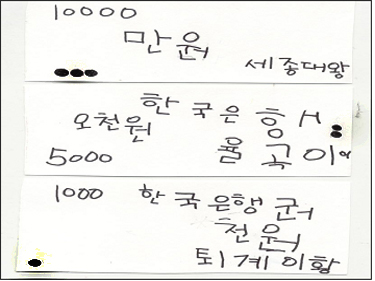 10000
만원
세종대왕
한국은행
오천원
5000 율곡이이
1000 한국은행권
천원
퇴계이황